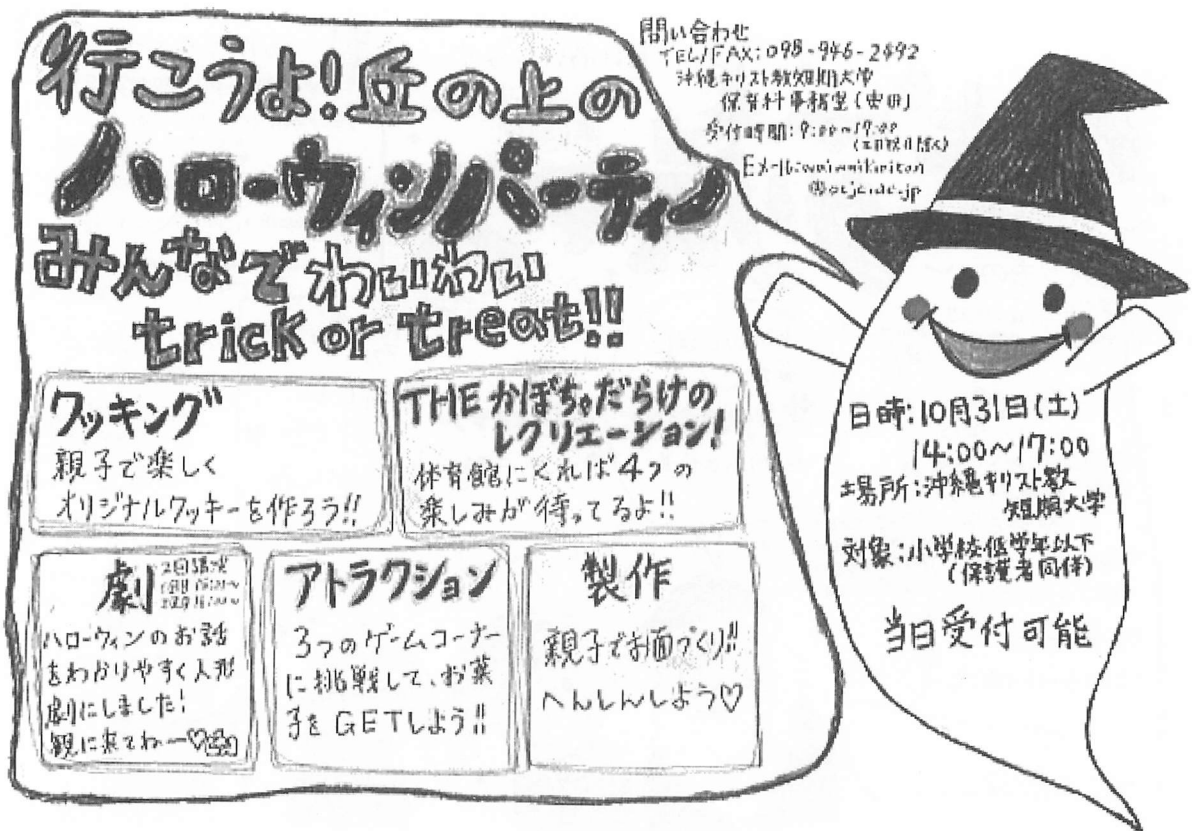 行こうよ!丘の上の
ハローウィンパーティ
みんなでわいわい
trick or treat!!
問い合わせ
TEL/FAX:098-946-2492
沖縄キリスト教短期大学
保育科事務室
受付時間:9:00~17:00
(土日祝日除く)
クッキング
親子で楽しく
オリジナルクッキーを作ろう!!
THE かぼちゃだらけの
レクリエーション!
体育館にくれば4つの
楽しみが待ってるよ!!
劇
2回講演
ハローウィンのお話
をわかりやすく人形
劇にしました!
観に来てねー♡
アトラクション
3つのゲームコーナー
に挑戦して、お菓
子をGETしよう!!
製作
親子でお面づくり!!
へんしんしよう♡
日時:10月31日(土)
14:00~17:00
場所:沖縄キリスト教
短期大学
対象:小学校低学年以下
(保護者同伴)
当日受付可能